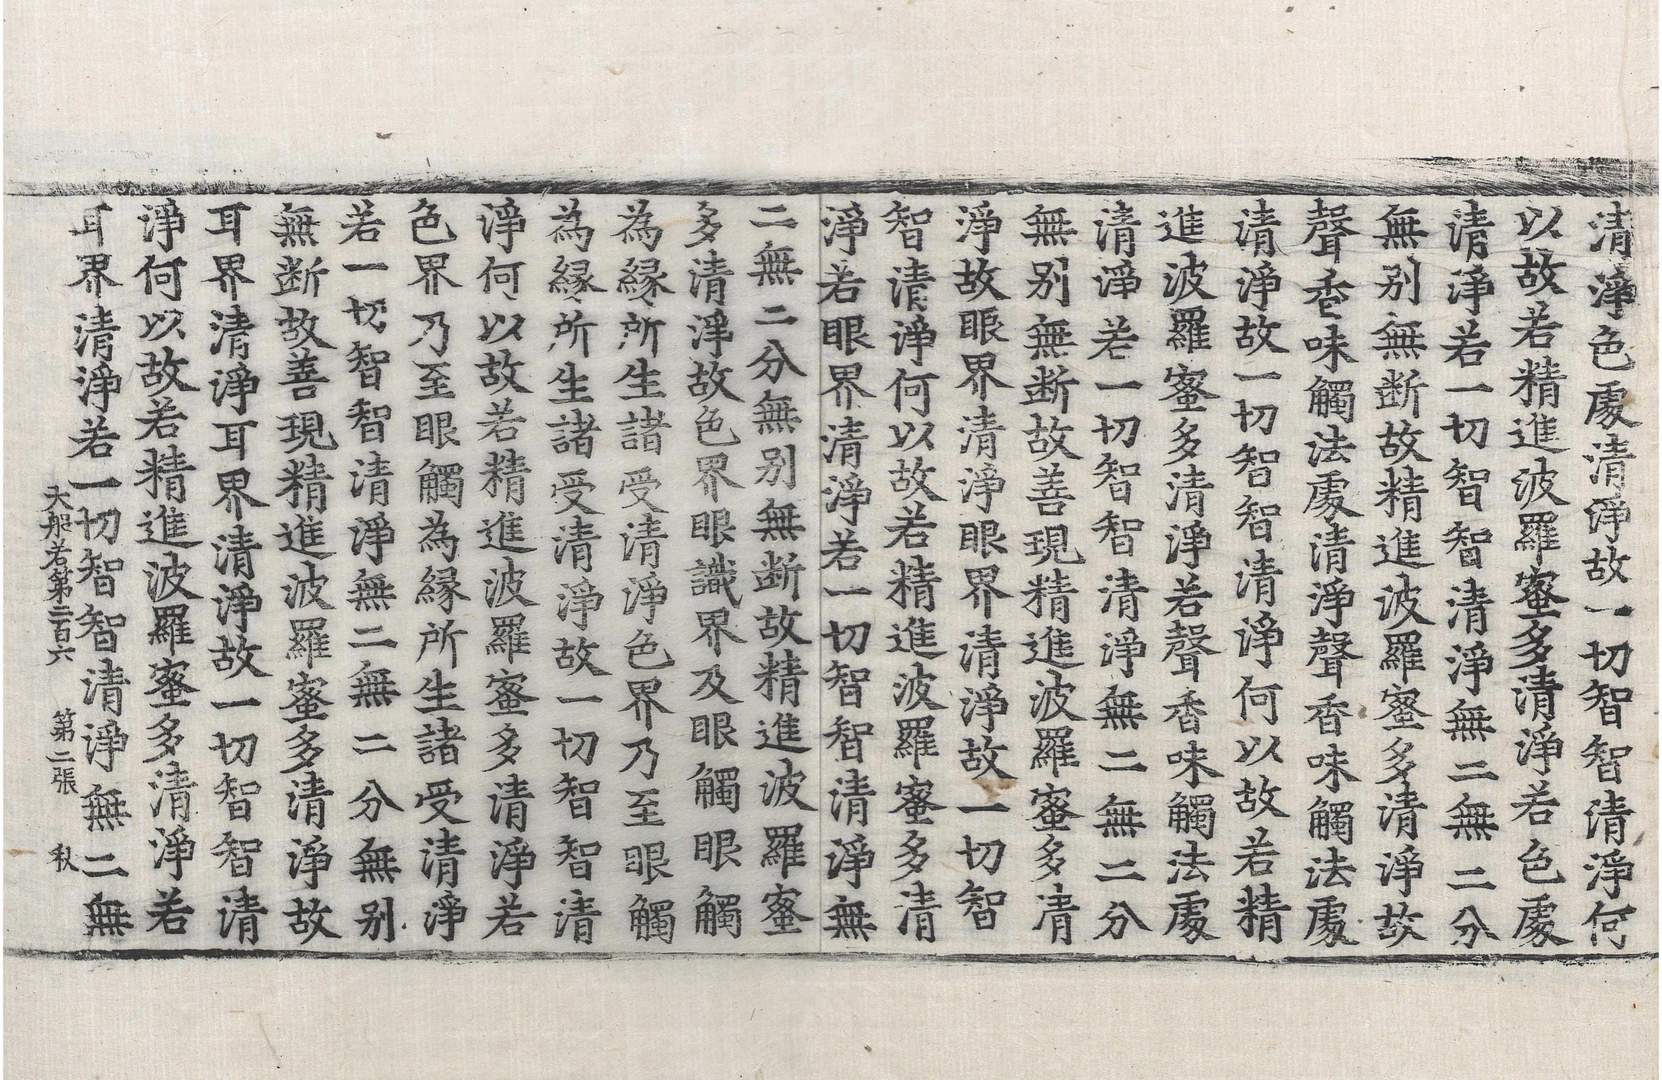 清淨色處清淨故一切智智清淨何
以故若精進波羅蜜多清淨若色處
清淨若一切智智清淨無二無二分
無別無斷故精進波羅蜜多清淨故
聲香味觸法處清淨聲香味觸法處
清淨故一切智智清淨何以故若精
進波羅蜜多清淨若聲香味觸法處
清淨若一切智智清淨無二無二分
無別無断故善現精進波羅蜜多清
淨故眼界清淨眼界清淨故一切智
智清淨何以故若精進波羅蜜多清
淨若眼界清淨若一切智智清淨無
二無二分無別無断故精進波羅蜜
多清淨故色界眼識界及眼觸眼觸
為緣所生諸受清淨色界乃至眼觸
為緣所生諸受清淨故一切智智清
淨何以故若精進波羅蜜多清淨若
色界乃至眼觸為緣所生諸受清淨
若一切智智清淨無二無二分無別
無断故善現精進波羅蜜多清淨故
耳界清淨耳界清淨故一切智智清
淨何以故若精進波羅蜜多清淨若
耳界清淨若一切智智清淨無二無
大般若第二百六 第二張 秋